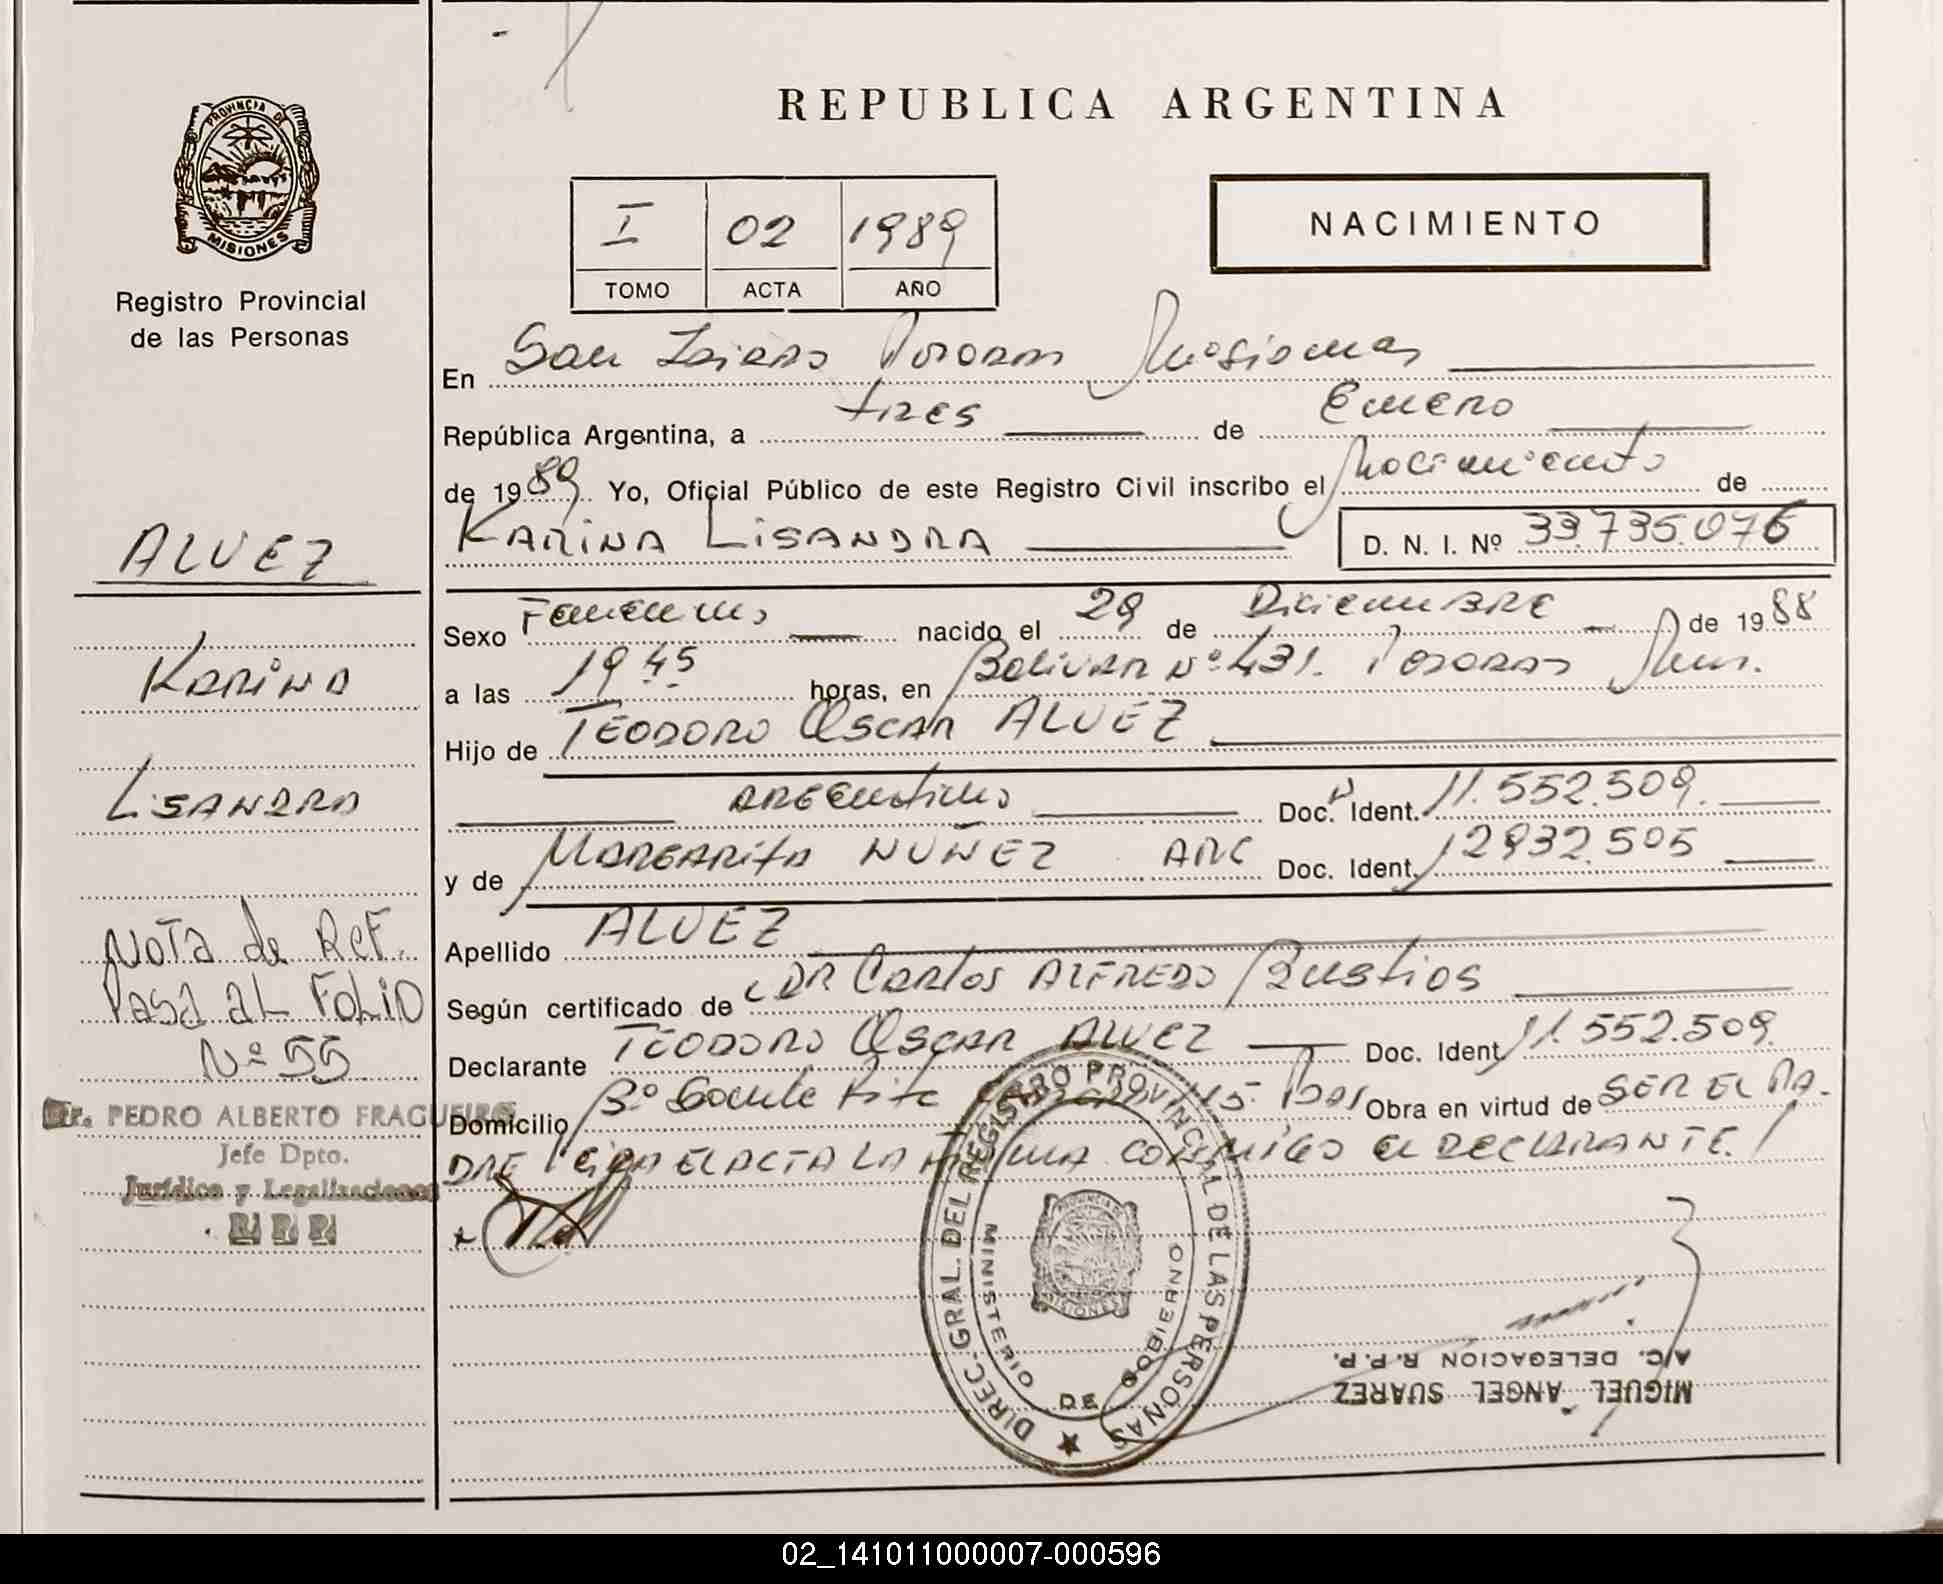 PROVINCIA DE
MISIONES
Registro Provincial
de las Personas
ALVEZ
Karina
Lisandra
Nota de Ref.
Pasa al Folio
Nº 55
Dr. PEDRO ALBERTO FRAGUEIRO
Jefe Dpto.
Jurídico y Legalizaciones
R P P
REPUBLICA ARGENTINA
I 02 1989
TOMO ACTA AÑO
NACIMIENTO
En San Isidro Posadas Misiones
República Argentina, a tres de Enero
de 1989 Yo, Oficial Público de este Registro Civil inscribo el Nacimiento de
KARINA LISANDRA D. N. I. Nº 33.735.076
Sexo Femenino nacido el 29 de Diciembre de 1988
a las 19 45 horas, en Bolivar Nº 431. Posadas Mnes.
Hijo de TEODORO OSCAR ALVEZ
argentino Doc. Ident. 11.552.509.
y de MARGARITA NUÑEZ ARG Doc. Ident. 12932.505
Apellido ALVEZ
Según certificado de DR Carlos ALFREDO Bustios
Declarante TEODORO OSCAR ALVEZ Doc. Ident 11.552.509.
Domicilio Bº Santa Rita 115 Pos Obra en virtud de SER EL PA-
DRE Leida EL ACTA LA FIRMA CONMIGO EL DECLARANTE.
DIREC. GRAL. DEL REGISTRO PROVINCIAL DE LAS PERSONAS
MINISTERIO DE GOBIERNO
PROVINCIA
MISIONES
MIGUEL ANGEL SUAREZ
A/C. DELEGACION R.P.P.
02_141011000007-000596